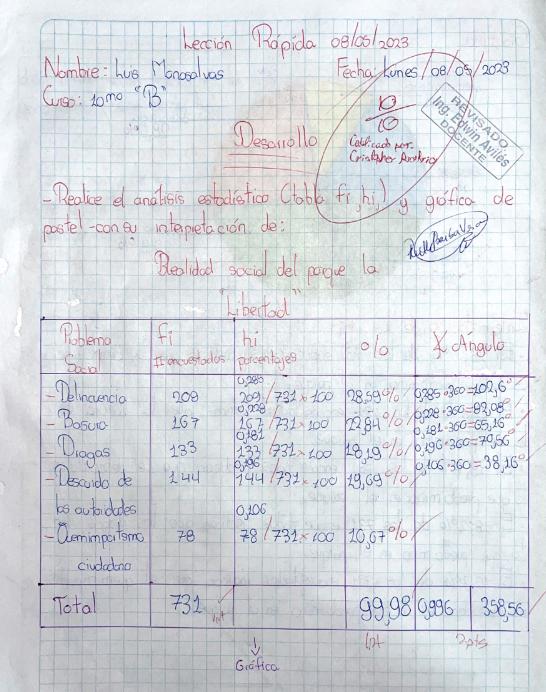 Lección Rápida 08/05/2023
Nombre: Luis Manosalvas Fecha: Lunes/08/05/2023
Curso: 10mo "B"
10/10
Calificado por:
Cristopher
REVISADO
Ing. Edwin Avilés
DOCENTE
Desarrollo
- Realice el análisis estadístico (tabla fi, hi,) y gráfica de
pastel - con su interpretación de:
Realidad social del parque la
"Libertad"
Problema Social fi # encuestados hi porcentajes o/o ∡ Ángulo
- Delincuencia 209 0,285 209/731 × 100 28,59% 0,285·360=102,6°
- Basura 167 0,228 167/731 × 100 22,84% 0,228·360=82,08°
- Drogas 133 0,181 133/731 × 100 18,19% 0,181·360=65,16°
- Descuido de las autoridades 144 0,196 144/731 × 100 19,69% 0,196·360=70,56°
- Quemimportismo ciudadano 78 0,106 78/731 × 100 10,67% 0,106·360=38,16°
Total 731 99,98 0,996 358,56
1pt 1pt 2pts
Gráfica